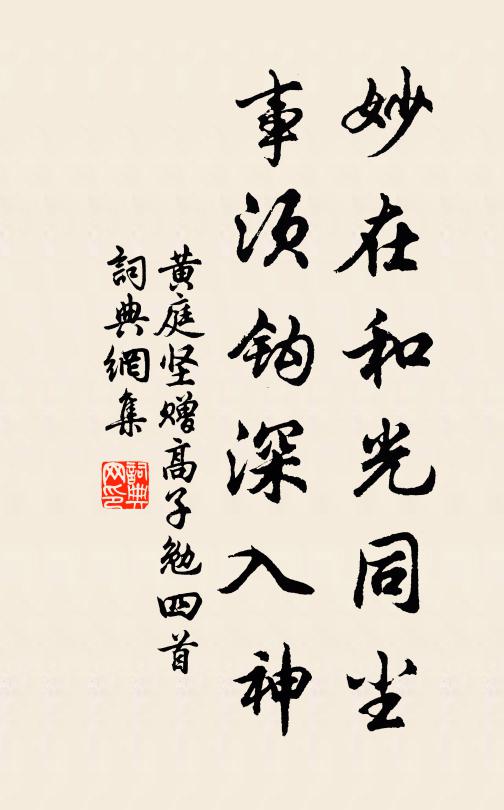 妙在和光同尘
事须钩深入神
黄庭坚赠高子勉四首
詞典網集
詞典网印